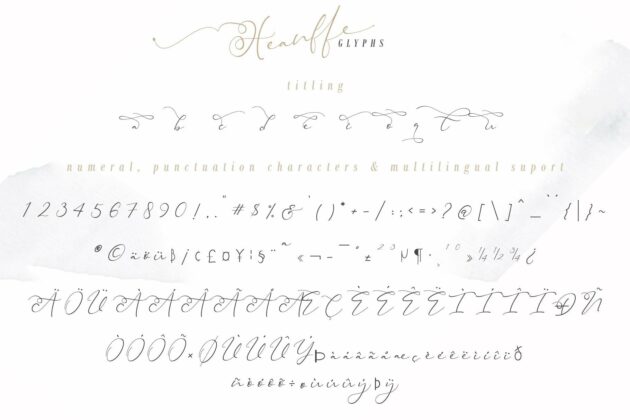 Heanffe GLYPHS
titling
a b c d e i o q t u
numeral, punctuation characters & multilingual suport
1 2 3 4 5 6 7 8 9 0 ! . . " # $ % & ' ( ) * + - / : ; < = > ? @ [ \ ] ^ _ ` { | } ~
® © ä ö ü ß / ¢ £ ¤ ¥ ¦ § ¨ ~ « ¬ - ¯ ° ± 2 3 µ ¶ · ¸ 1 0 » ¼ ½ ¾ ¿
Ä Ö Ü Æ Ç È É Ê Ë Ì Í Î Ï Ð Ñ
Ò Ó Ô Õ × Ø Ù Ú Û Ý Þ à á â ã å æ ç è é ê ë ì í î ï ð
ñ ò ó ô õ ÷ ø ù ú û ý þ ÿ